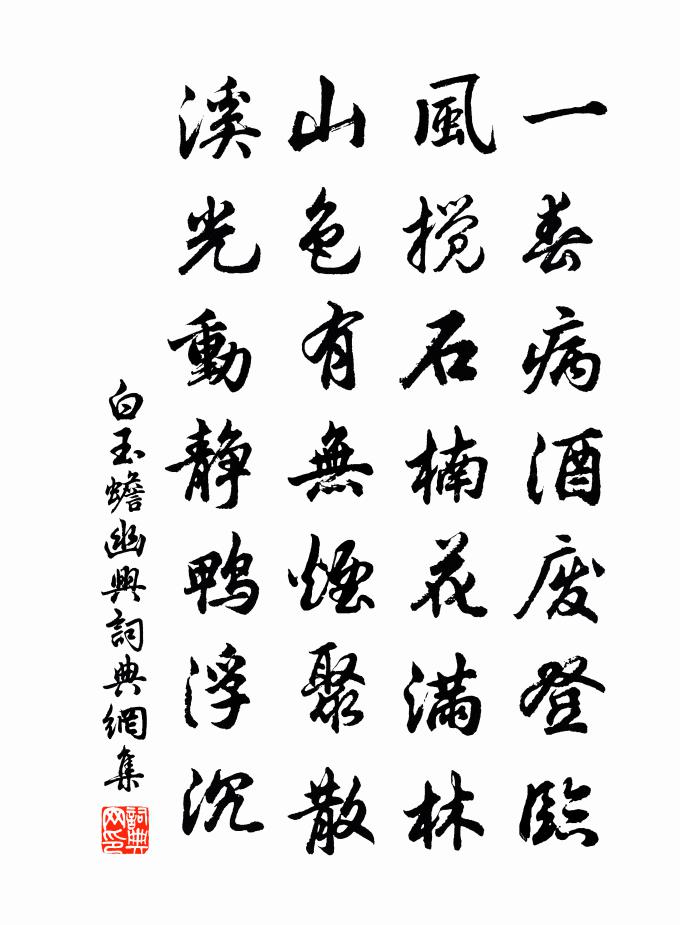 一春病酒廢登臨
風攪石楠花滿林
山色有無煙聚散
溪光動靜鴨浮沉
白玉蟾幽興詞典網集
詞典網印